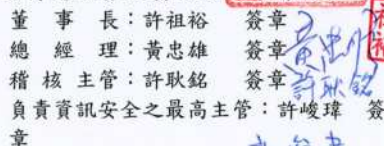 董事長：許祖裕 簽章
總經理：黃忠雄 簽章 黃忠雄
稽核主管：許耿銘 簽章 許耿銘
負責資訊安全之最高主管：許峻瑋 簽
章